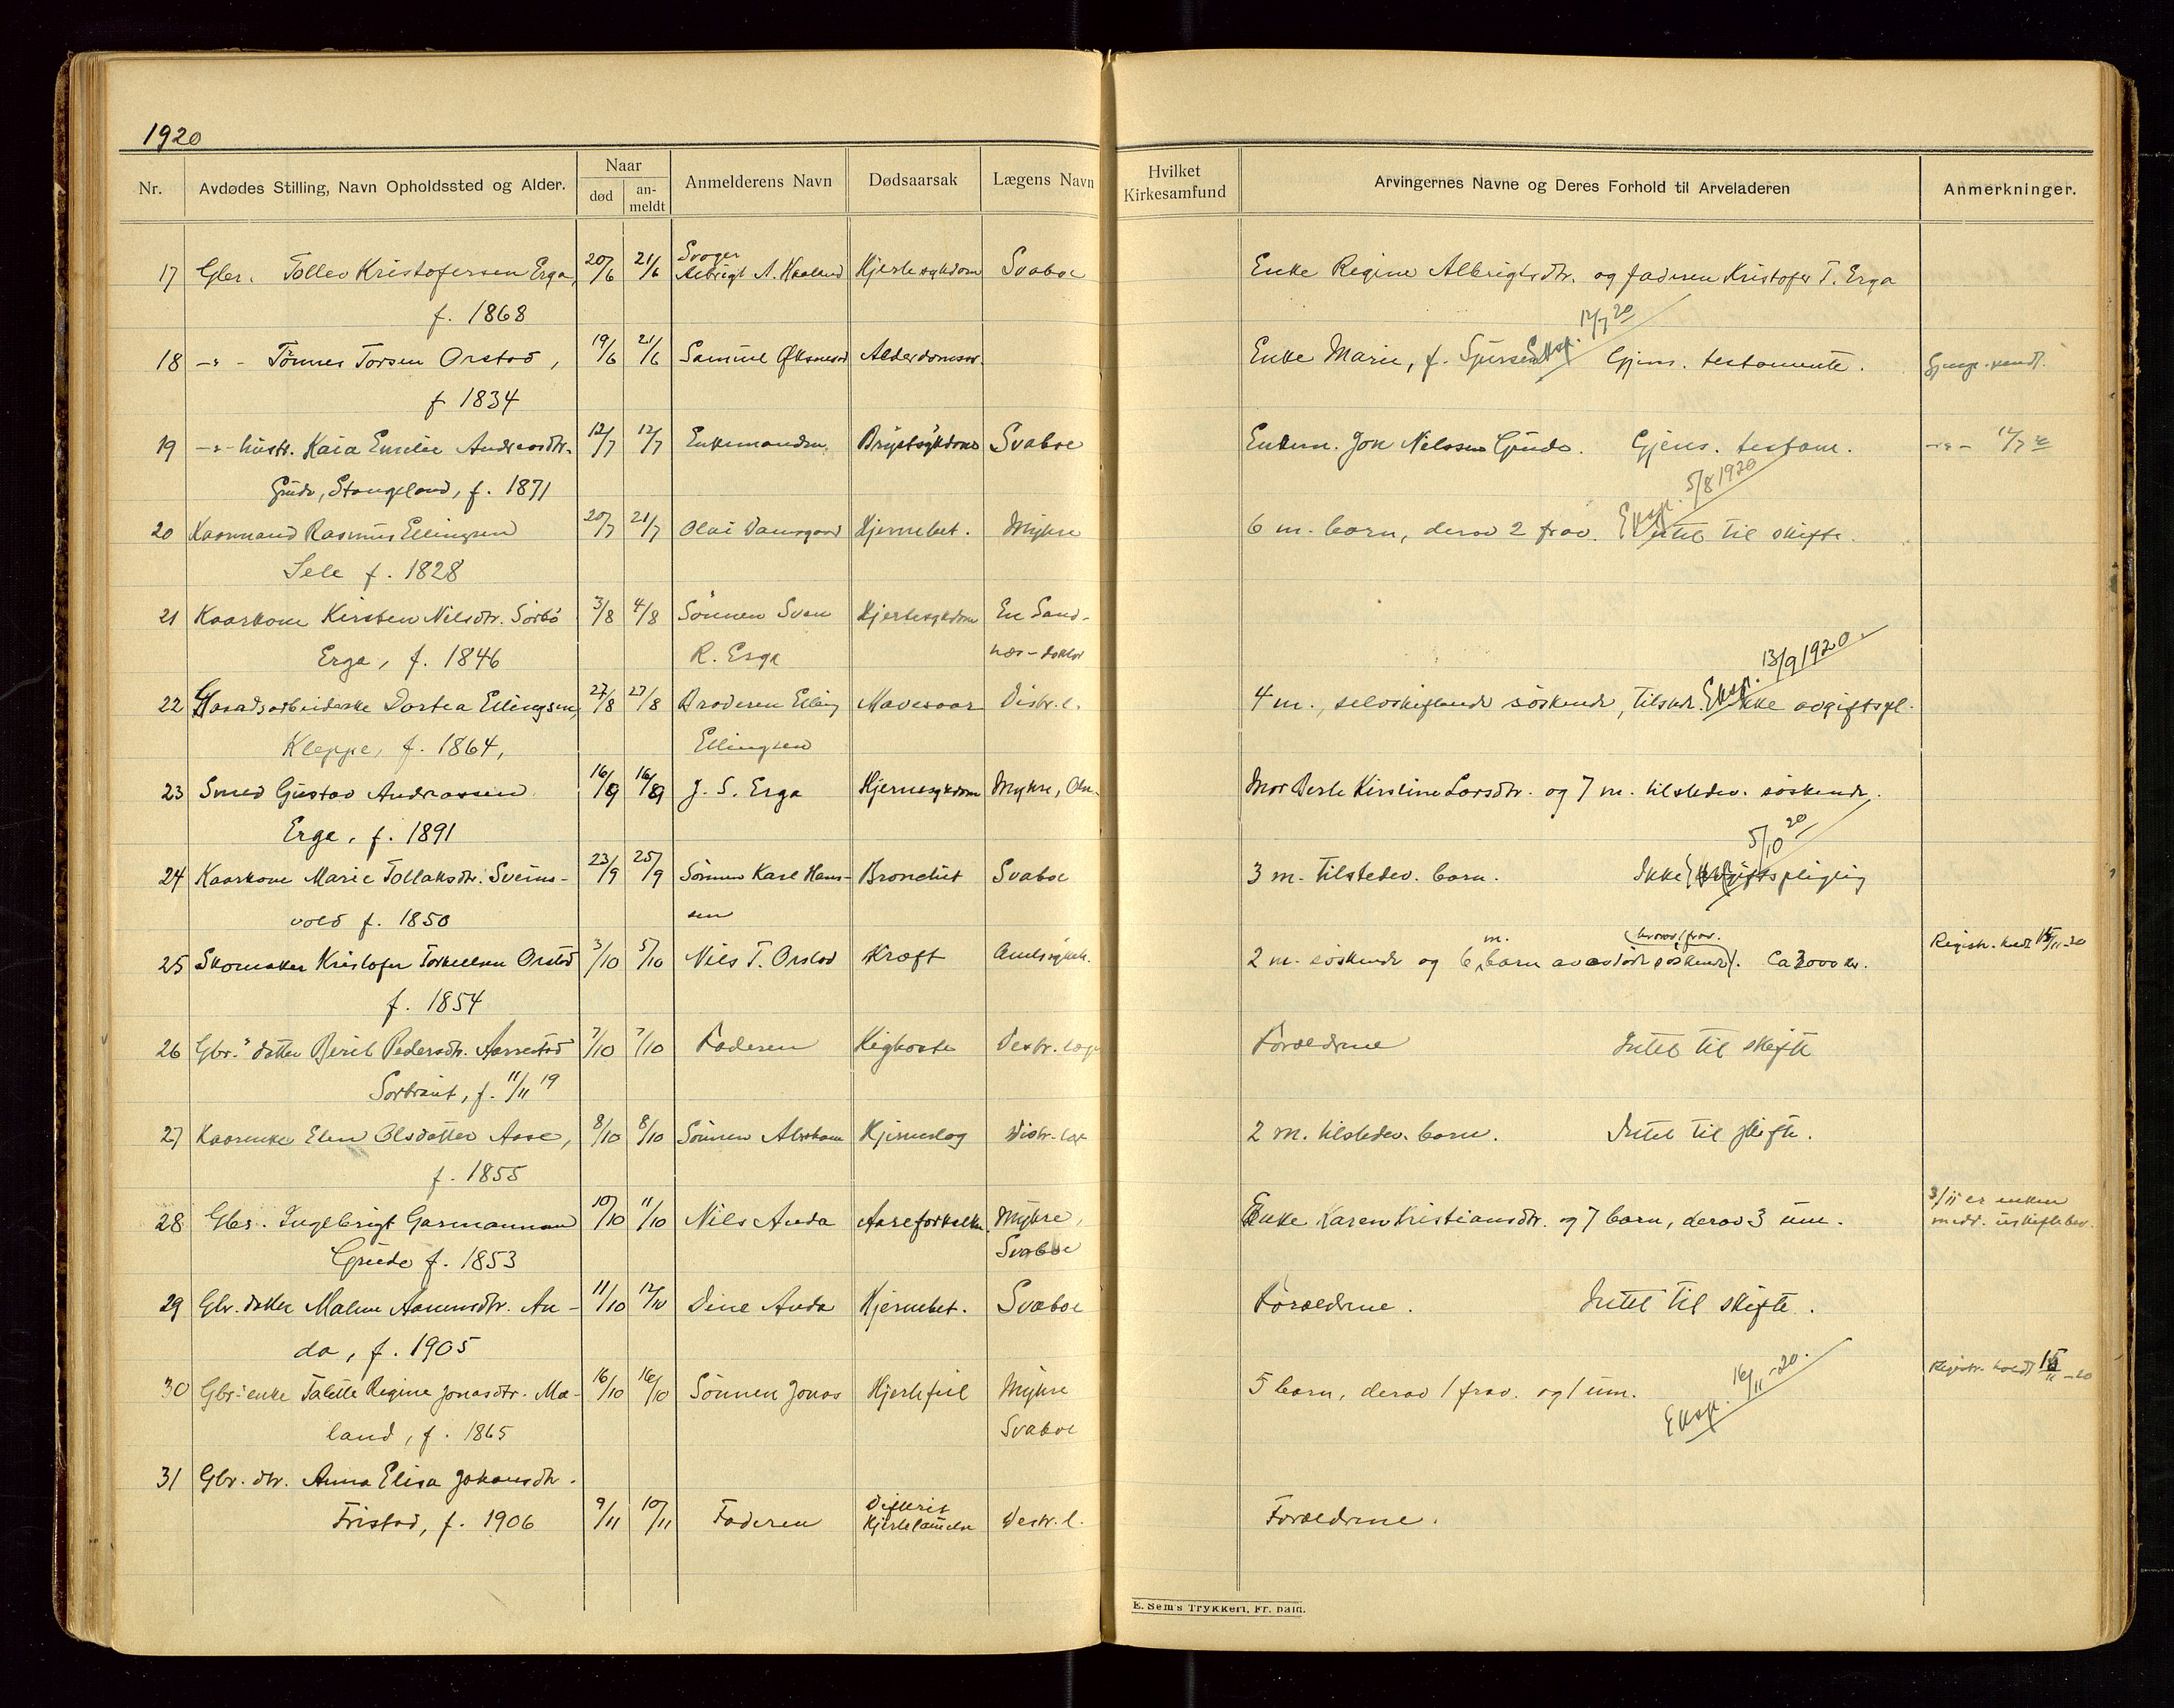 1920
Nr. Avdødes Stilling, Navn Opholdssted og Alder. Naar død an-meldt Anmelderens Navn Dødsaarsak Lægens Navn Hvilket Kirkesamfund Arvingernes Navne og Deres Forhold til Arveladeren Anmerkninger.
17 Gbr. Tollev Kristofersen Erga, 20/6 21/6 Svoger Albrigt A. Haaland Hjertesykdom Svaboe Enke Regine Albrigtsdtr. og faderen Kristofer T. Erga
f. 1868
18 -"- Tønnes Torsen Orstad, 19/6 21/6 Samuel Øksnevad Alderdomssv. Enke Marie, f. Sjursen Eksp. 12/7 20 Gjens. testamente.
f 1834
19 -"- hustr. Kaia Emilie Andreasdtr. 12/7 12/7 Enkemanden. Brystsykdom Svaboe Enkem. Jon Nilssen Grude. Gjens. testam. -"- 12/7 20
Grude, Stangeland, f. 1871
20 Kaarmand Rasmus Ellingsen 20/7 21/7 Olai Vansgaard Hjernebet. Myhre 6 m. barn, derav 2 frav. Eksp. 5/8 1920 Intet til skifte.
Sele f. 1828
21 Kaarkone Kirsten Nilsdtr. Sörbö 3/8 4/8 Sönnen Sven Hjertesykdom En Sand-
Erga, f. 1846 R. Erga nes-doktor
22 Haandarbeiderske Dortea Ellingsen, 27/8 27/8 Broderen Elling Mavesaar Distr. l. 4 m., selvskiftende söskende, tilstede. Eksp. 13/9 1920. Ikke avgiftspl.
Kleppe, f. 1864, Ellingsen
23 Smed Gustav Andreassen 16/9 16/9 J. S. Erga Hjernesykdom Myhre, Mor Berte Kirstine Larsdtr. og 7 m. tilstedev. söskende.
Erga, f. 1891
24 Kaarkone Marie Tollaksdtr. Sveins- 23/9 25/9 Sönnen Karl Han- Bronchit Svaboe 3 m. tilstedev. barn. 5/10 20 Ikke avgiftspligtig
vold f. 1850 sen
25 Skomaker Kristofer Torkelsen Orstad 3/10 5/10 Nils T. Orstad Kræft Amtssykeh. 2 m. söskende og 6 m. barn av avdöde söskende (hvorav 1 frav.). Ca 3000 kr. Registr. holdt 15/11-20
f. 1854
26 Gbr." datter Berit Pedersdtr. Aarrestad 7/10 7/10 Faderen Kighoste Distr. læge Forældrene Intet til skifte
Sortraut, f. 11/11 19
27 Kaarenke Elen Olsdatter Aase, 8/10 8/10 Sönnen Abraham Hjerneslag Distr. læge 2 m. tilstedev. barn. Intet til skifte.
f. 1855
28 Gbr. Ingebrigt Garmannsen 10/10 11/10 Nils Anda Aareforkalkn. Myhre, Enke Karen Kristiansdtr. og 7 barn, derav 3 um. 3/11 er enken
Grude f. 1853 Svaboe medd. uskiftebev.
29 Gbr. datter Malene Aamundsdtr. An- 11/10 12/10 Dine Anda Hjernebet. Svaboe Forældrene. Intet til skifte.
da, f. 1905
30 Gbr.-enke Talette Regine Jonasdtr. Mæ- 16/10 16/10 Sönnen Jonas Hjertefeil Myhre 5 barn, derav 1 frav. og 1 um. Eksp. 16/11-20. Registr. holdt 15/11-20
land, f. 1865 Svaboe
31 Gbr. dtr. Anna Elisa Johansdtr.
Fristad, f. 1906 9/11 10/11 Faderen Difterit Hjertelammelse Distr. l. Forældrene.
E. Sem's Trykkeri, Fr. hald.